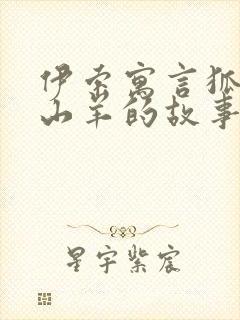 伊索寓言狐
山羊的故事
星宇紫宸